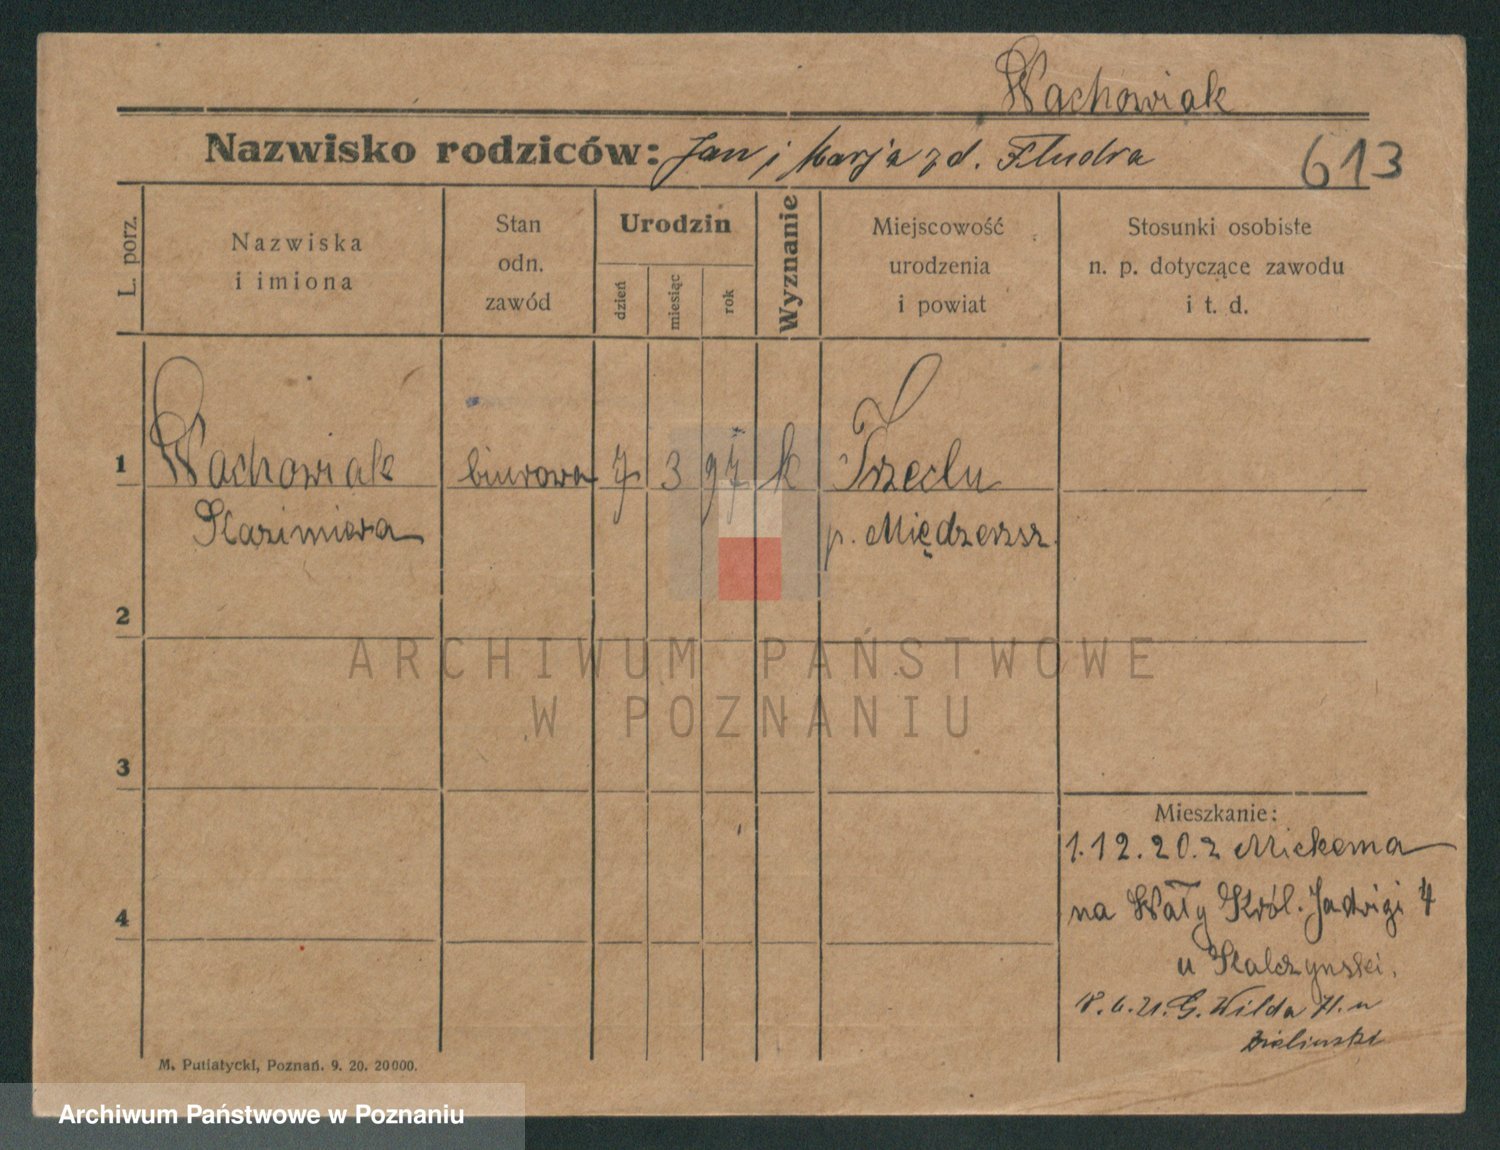 Wachowiak
Nazwisko rodziców: Jan i Marja zd. Fludra
613
L. porz.
Nazwiska
i imiona
Stan
odn.
zawód
Urodzin
dzień
miesiąc
rok
Wyznanie
Miejscowość
urodzenia
i powiat
Stosunki osobiste
n. p. dotyczące zawodu
i t. d.
1 Wachowiak biurowa 7 3 97 k
Kazimiera p. Międzerzsz.
2
ARCHIWUM PAŃSTWOWE
W POZNANIU
3
Mieszkanie:
1.12.20. z
na Wały Król. Jadwigi 4
4
u Kalczynski.
18.6.21. G. Wilda 71. u
Zielinski
M. Putiatycki, Poznań. 9. 20. 20000.
Archiwum Państwowe w Poznaniu